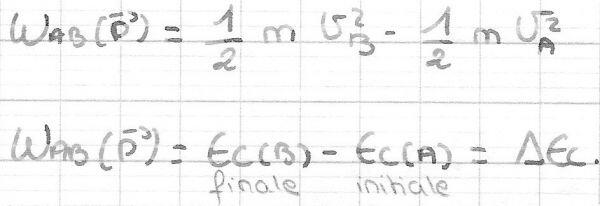 WAB(P⃗) = 1/2 m v²B - 1/2 m v²A
WAB(P⃗) = EC(B) - EC(A) = ΔEC.
finale initiale